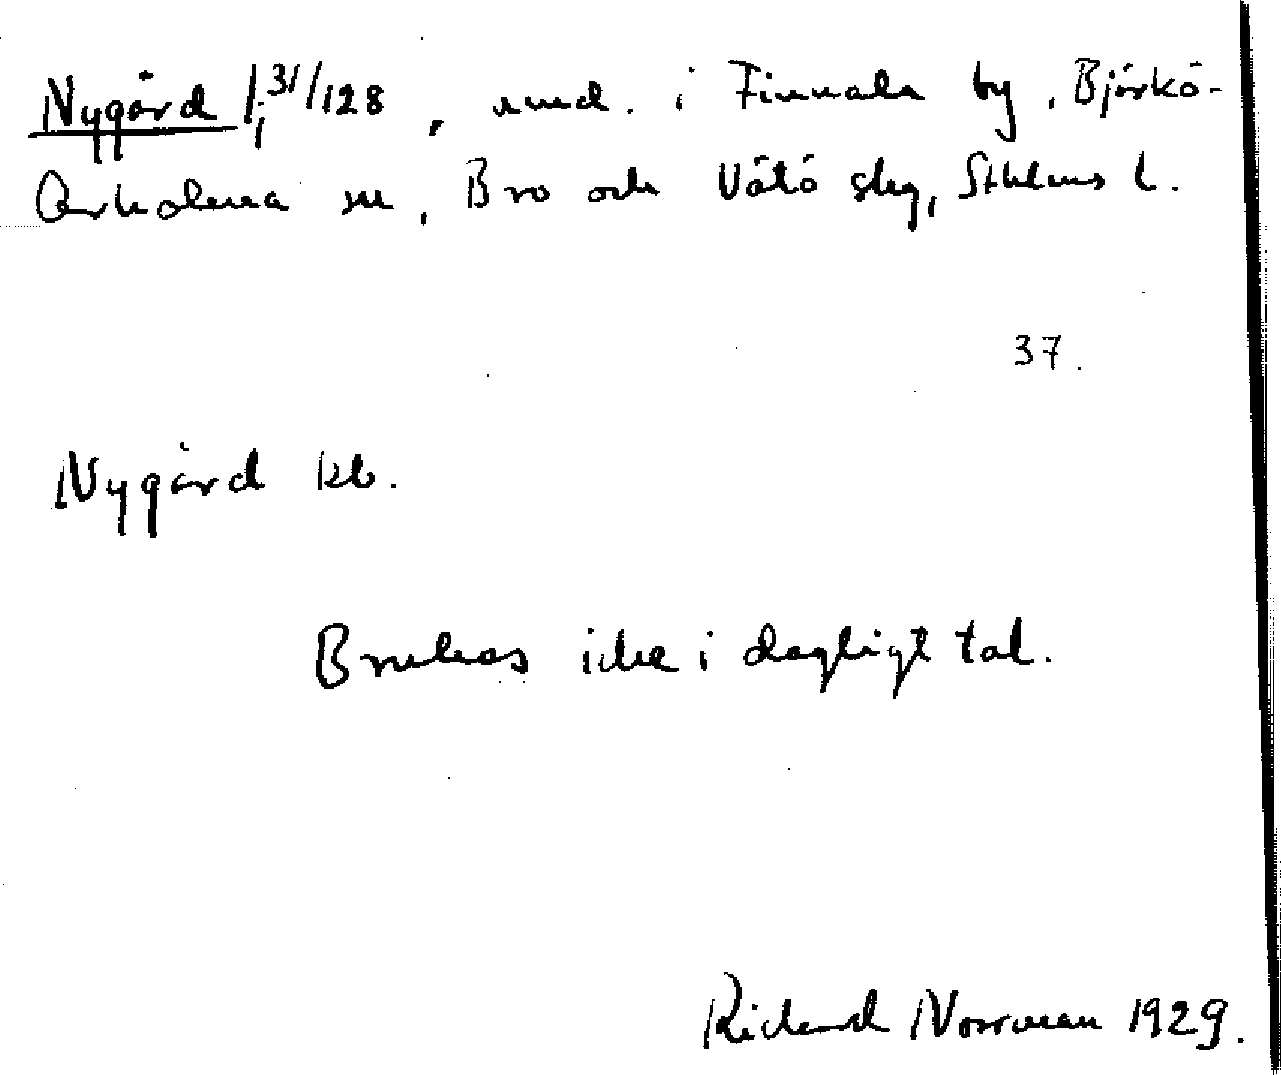 Nygård 1;31/128, und. i Finnala by, Björkö-
Arholma sn, Bro och Vätö skg, Sthlms l.
37.
Nygård kb.
Brukas icke i dagligt tal.
Richard Norrman 1929.